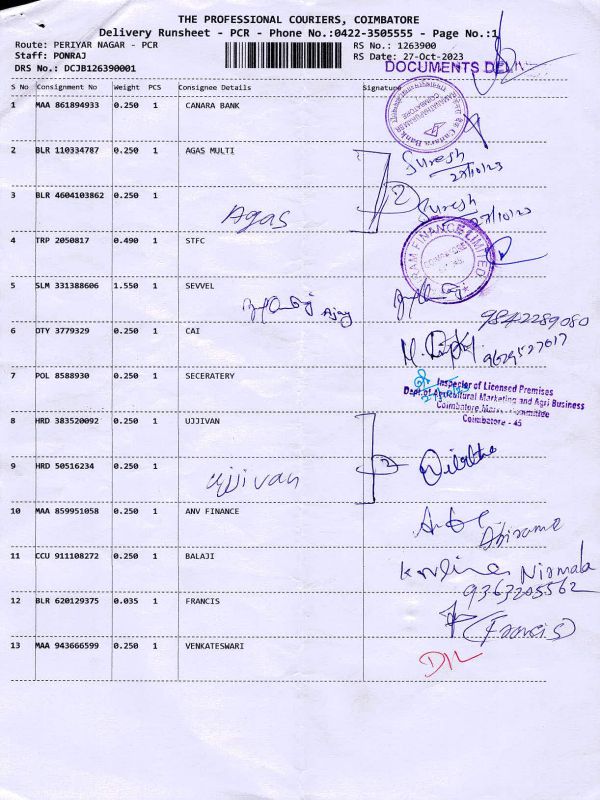 THE PROFESSIONAL COURIERS, COIMBATORE
Delivery Runsheet - PCR - Phone No.:0422-3505555 - Page No.:1
Route: PERIYAR NAGAR - PCR
RS No.: 1263900
Staff: PONRAJ
RS Date: 27-Oct-2023
DRS No.: DCJB126390001
DOCUMENTS
S No Consignment No Weight PCS Consignee Details Signature
1 MAA 861894933 0.250 1 CANARA BANK
Canara Bank
COIMBATORE
2 BLR 110334787 0.250 1 AGAS MULTI
Suresh
27/10/23
2
3 BLR 4604103862 0.250 1
Agas
Suresh
27/10/23
4 TRP 2050817 0.490 1 STFC
RAM FINANCE LIMITED
5 SLM 331388606 1.550 1 SEVVEL
Ajay
9842289080
6 OTY 3779329 0.250 1 CAI
9629527617
7 POL 8588930 0.250 1 SECERATERY
Inspector of Licensed Premises
Dept.of Agricultural Marketing and Agri Business
Coimbatore Market Committee
Coimbatore - 45
8 HRD 383520092 0.250 1 UJJIVAN
2
9 HRD 50516234 0.250 1
ujjivan
10 MAA 859951058 0.250 1 ANV FINANCE
Abirame
11 CCU 911108272 0.250 1 BALAJI
Nirmala
9363205562
12 BLR 620129375 0.035 1 FRANCIS
(Francis)
13 MAA 943666599 0.250 1 VENKATESWARI
D/L